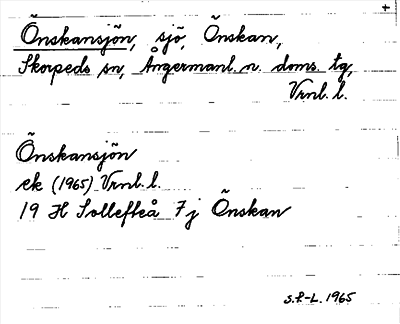 Önskansjön, sjö, Önskan,
Skorpeds sn, Ångermanl. n. doms. tg,
Vrnl. l.
Önskansjön
ek (1965) Vrnl. l.
19 H Sollefteå 7 j Önskan
S.P-L. 1965